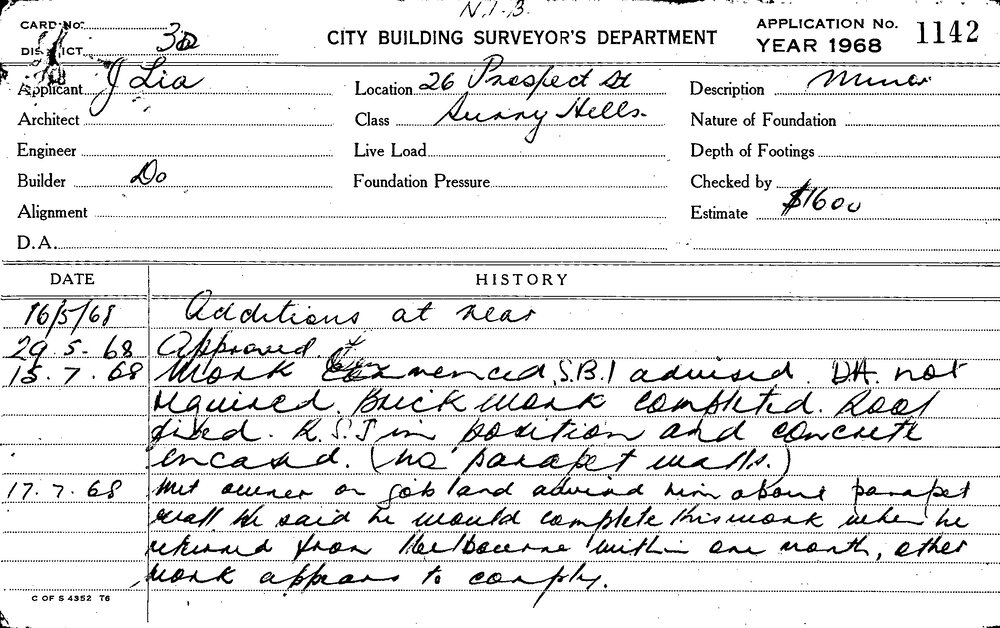 N.I.B.
CARD No.
DISTRICT 3D
CITY BUILDING SURVEYOR'S DEPARTMENT
APPLICATION No. 1142
YEAR 1968
Applicant J Lia
Location 26 Prospect St
Description Minor
Architect
Class Surry Hills.
Nature of Foundation
Engineer
Live Load
Depth of Footings
Builder Do
Foundation Pressure
Checked by
Alignment
Estimate $1600
D.A.
DATE HISTORY
16/5/68 Additions at rear
29.5.68 Approved.
15.7.68 Work commenced, S.B.I advised. D.A. not
required. Brick work completed. Roof
fixed. R.S.J in position and concrete
encased. (no parapet walls.)
17.7.68 Met owner on job and advised him about parapet
wall. He said he would complete this work when he
returned from Melbourne within one month, other
work appears to comply.
C OF S 4352 T6